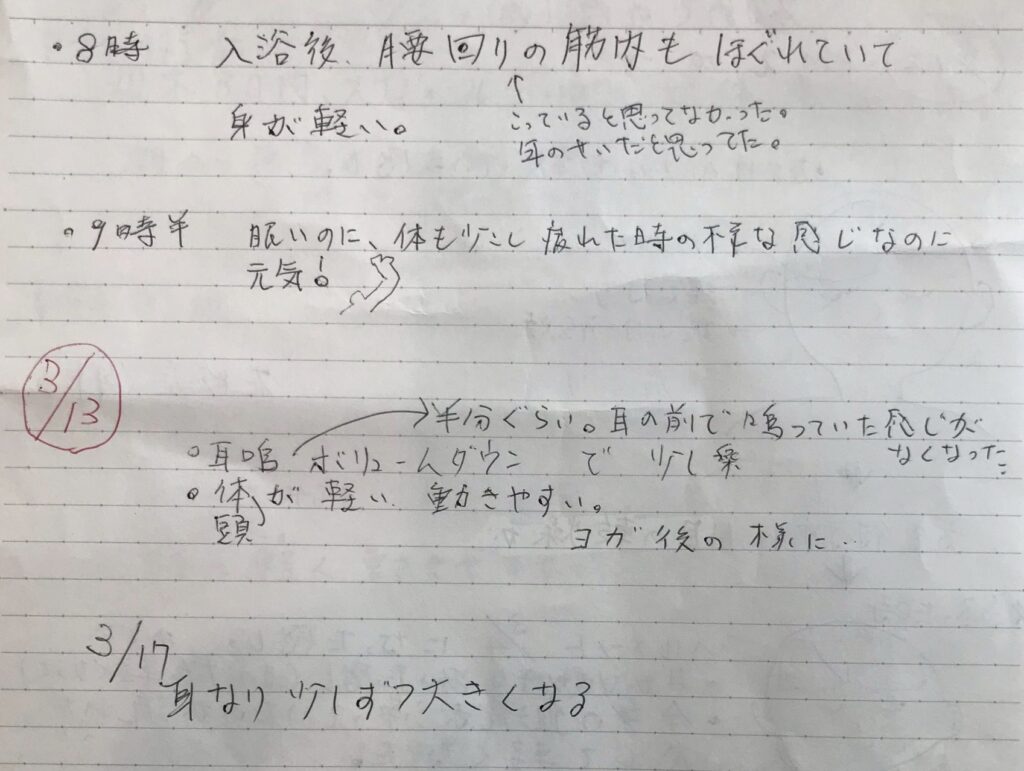 ・8時 入浴後、腰回りの筋肉も ほぐれていて
身が軽い。
↑
こっていると思ってなかった。
年のせいだと思ってた。
・9時半 眠いのに、体も少こし 疲れた時の様な感じなのに
元気!
3/13
→半分ぐらい。耳の前で鳴っていた感じが
なくなった
・耳鳴 ボリュームダウン で 少し楽
・体が 軽い 動きやすい。
頭
ヨガ後の様に‥
3/17
耳なり 少しずつ大きくなる